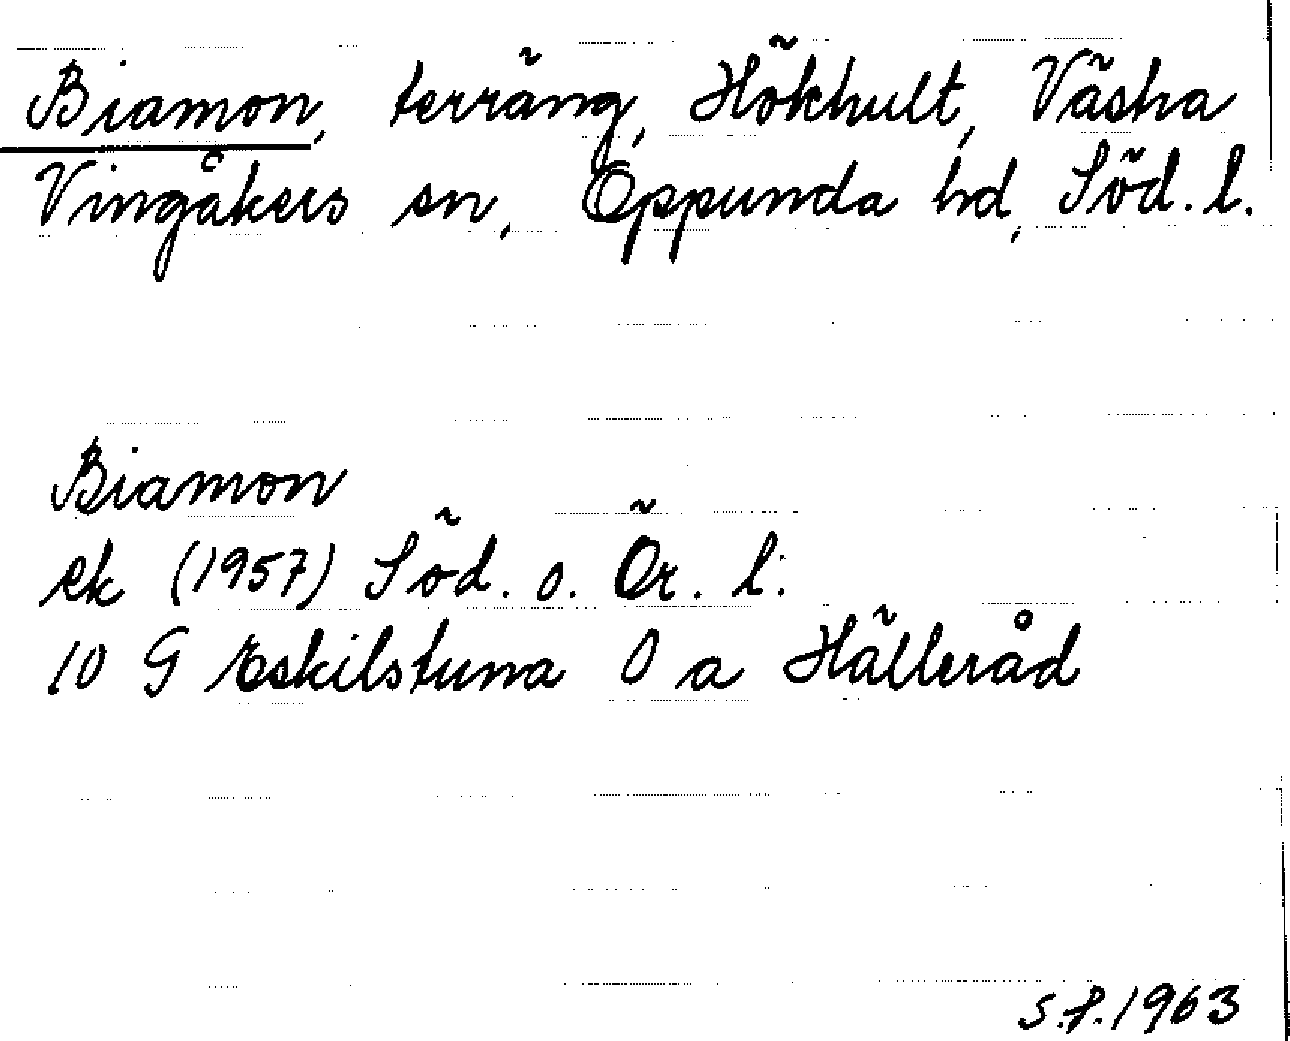 Biamon, terräng, Hökhult, Västra
Vingåkers sn, Oppunda hd, Söd. l.
Biamon
ek (1957) Söd. o. Ör. l.
10 G Eskilstuna 0 a Hälleråd
S.F. 1963